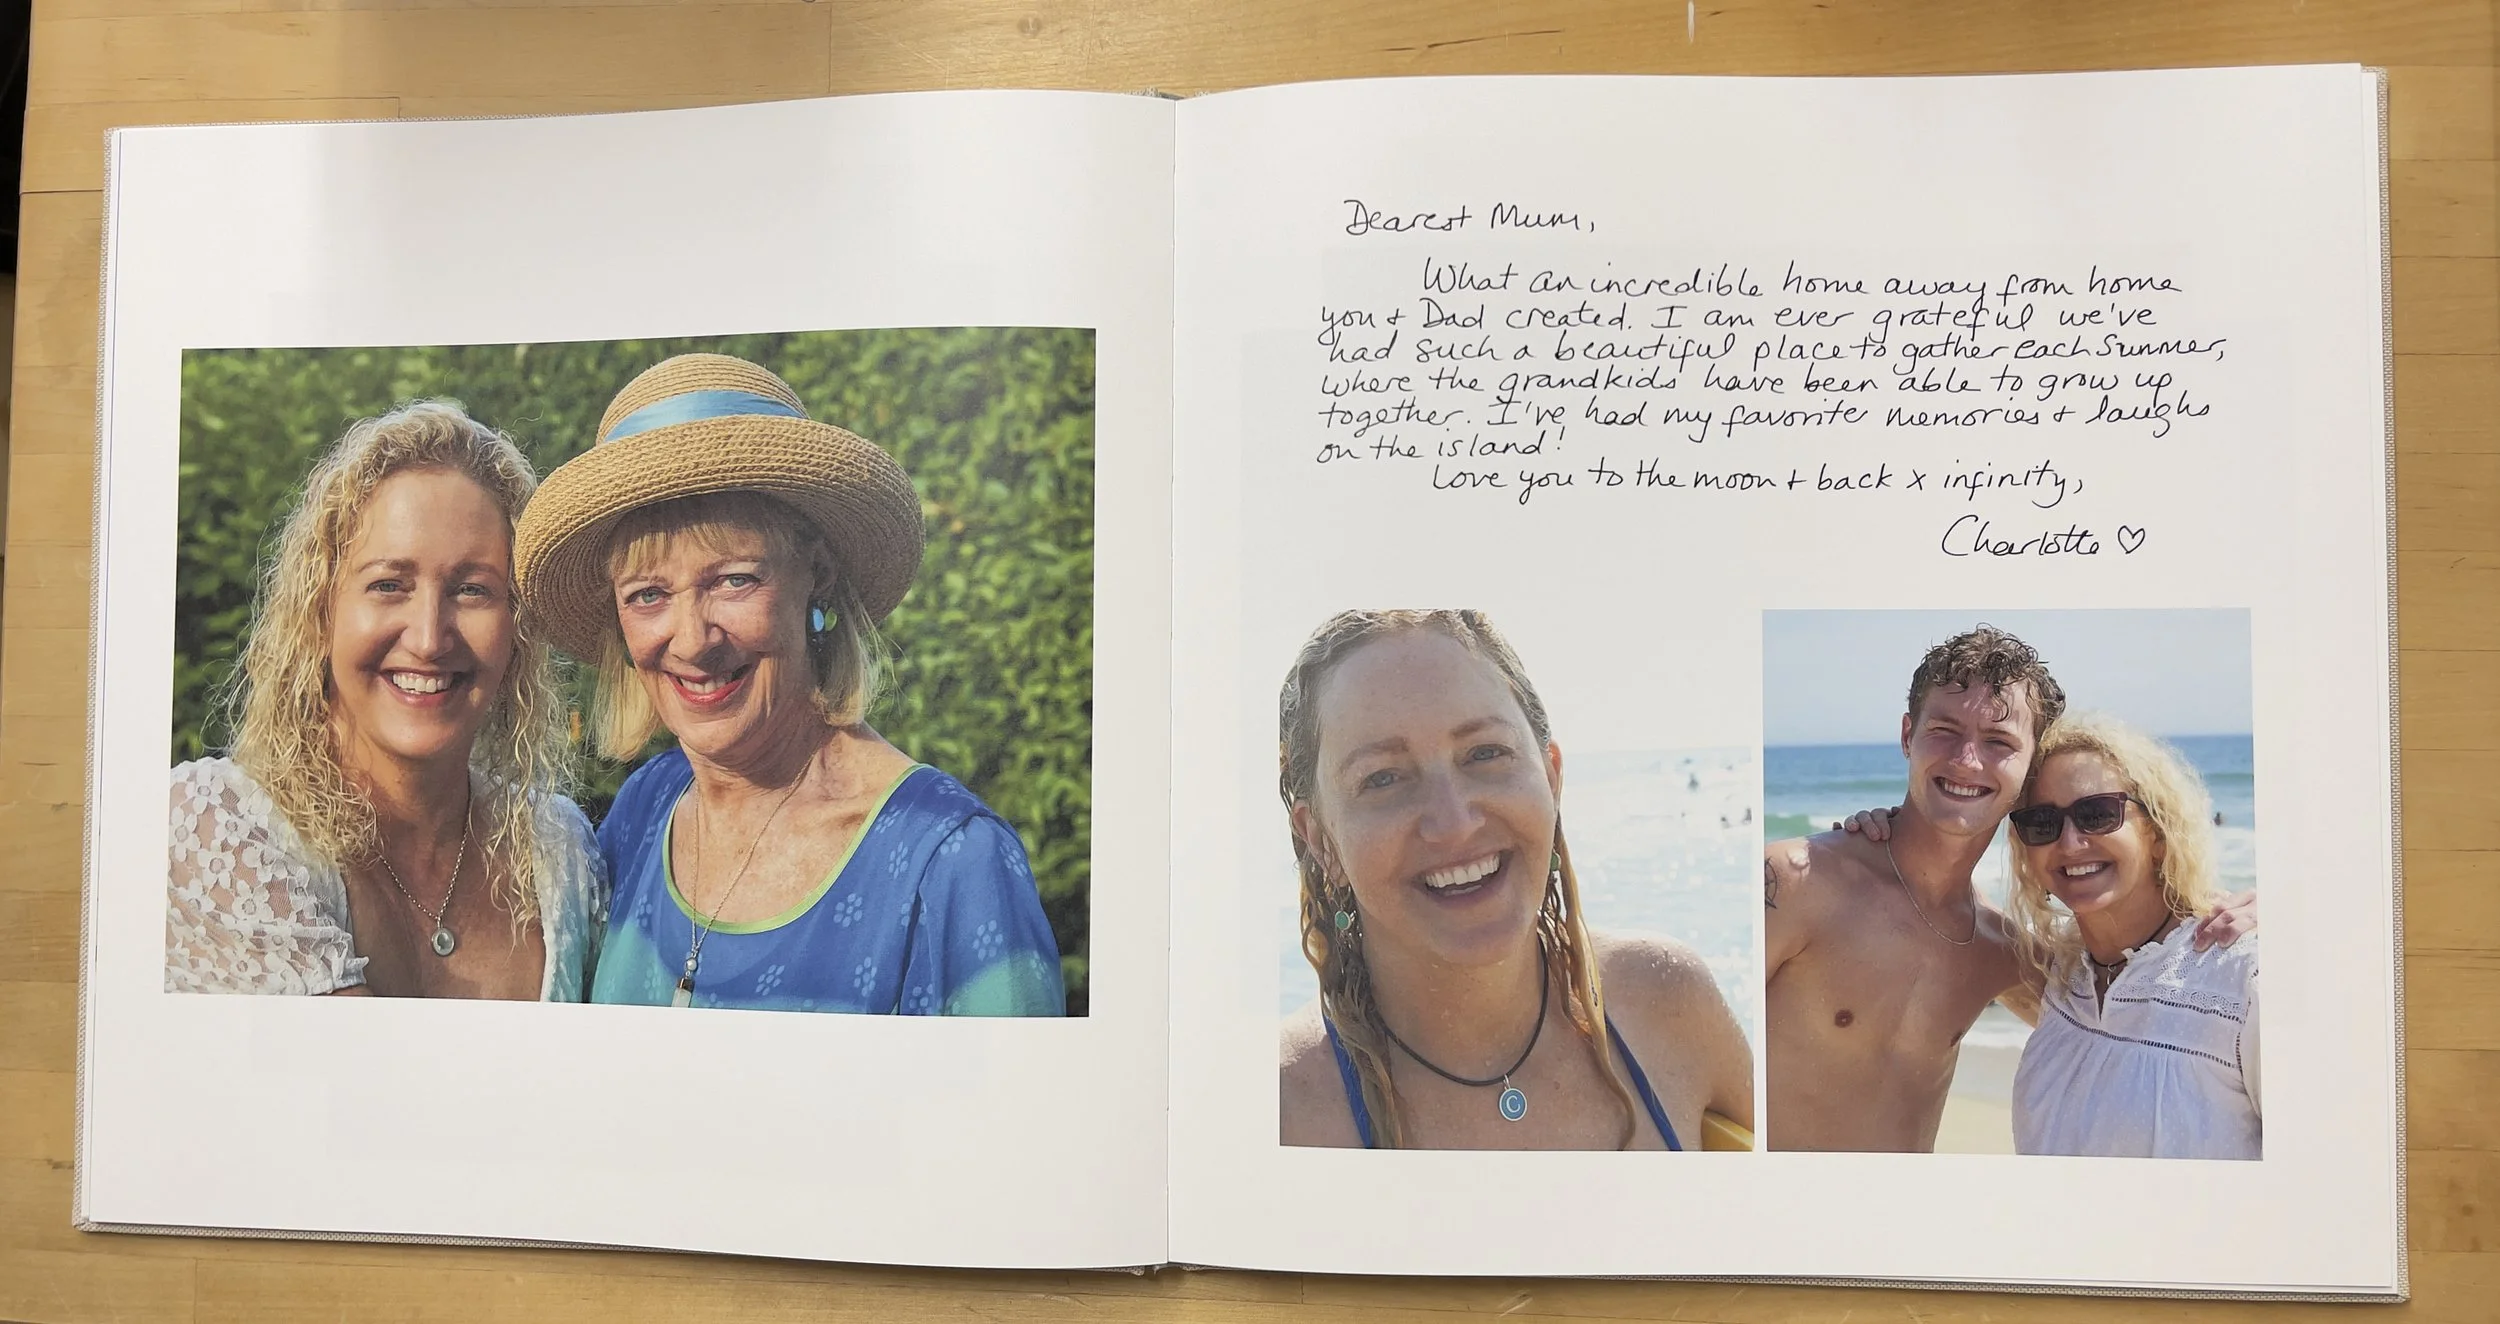 Dearest Mum,
What an incredible home away from home
you + Dad created. I am ever grateful we've
had such a beautiful place to gather each summer,
where the grandkids have been able to grow up
together. I've had my favorite memories + laughs
on the island!
Love you to the moon + back x infinity,
Charlotte ♡
C